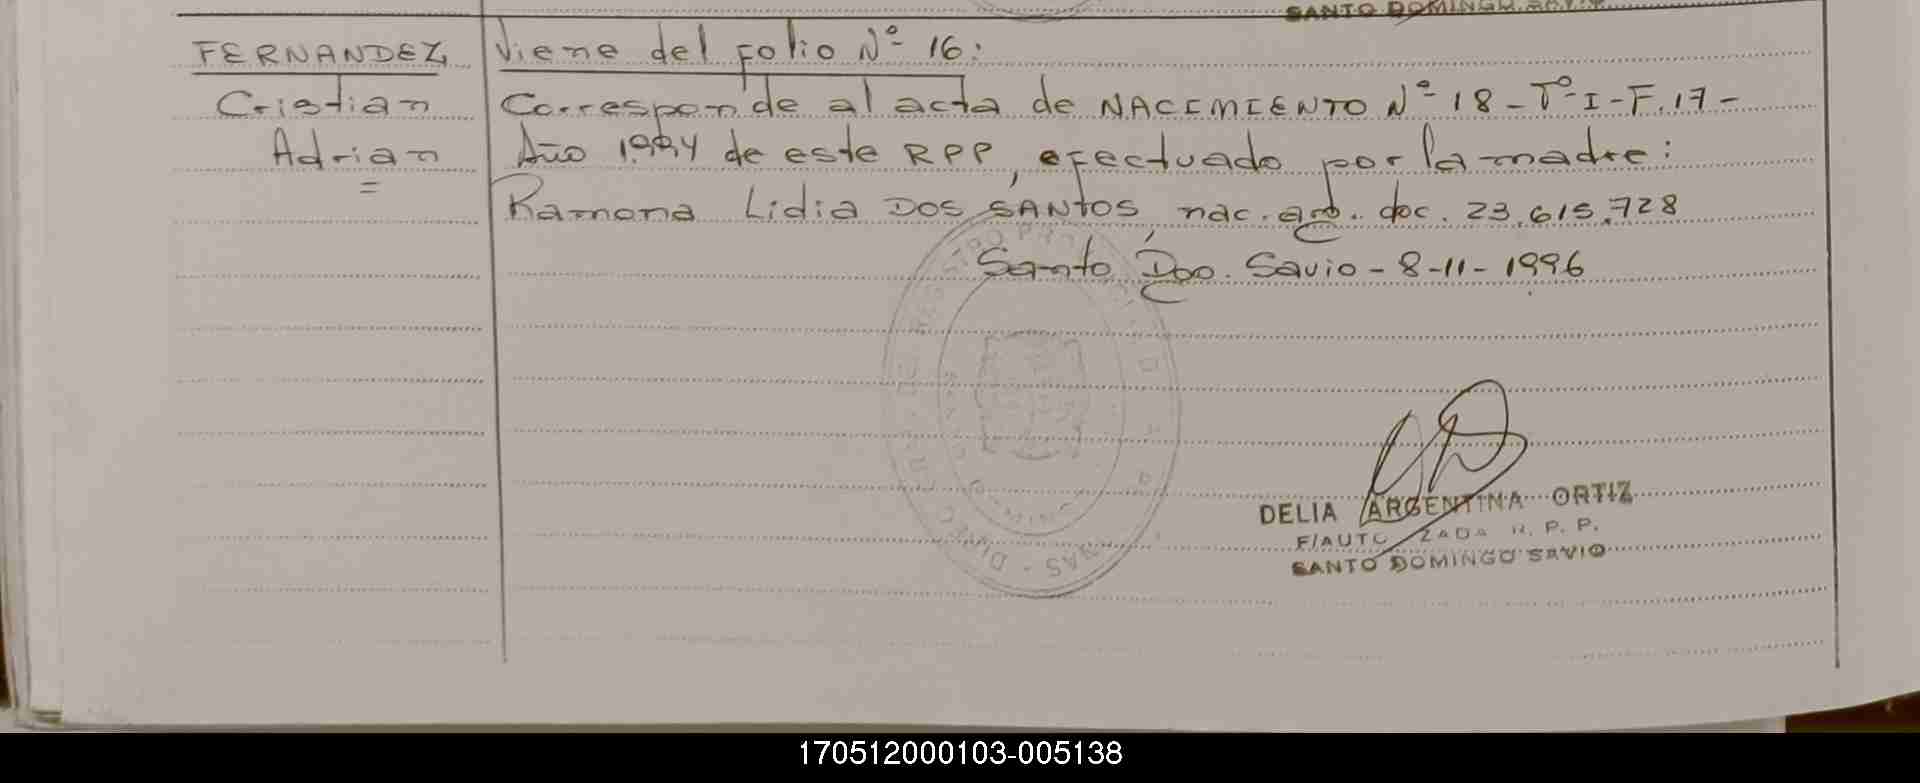 SANTO DOMINGO SAVIO
FERNANDEZ,
Cristian
Adrian
=
Viene del folio Nº 16:
Corresponde al acta de NACIMIENTO Nº 18 - Tº I - F. 17 -
Año 1.994 de este RPP, efectuado por la madre:
Ramona Lidia DOS SANTOS, nac. arg. doc. 23.615.728
Santo Dgo. Savio - 8-11-1996
DELIA ARGENTINA ORTIZ
F/AUTO ZADA R. P. P.
SANTO DOMINGO SAVIO
170512000103-005138